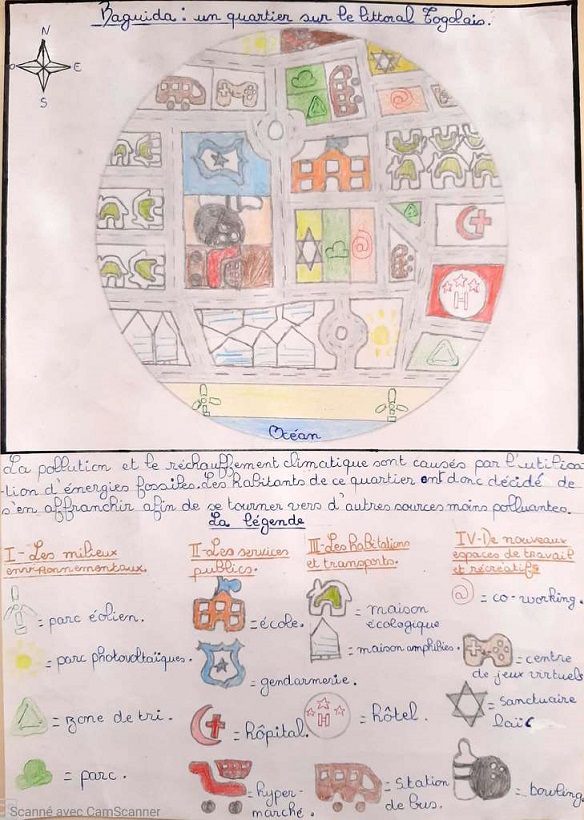 Baguida : un quartier sur le littoral Togolais.
N
E
S
H
Océan
La pollution et le réchauffement climatique sont causés par l'utilisa
-tion d'énergies fossiles. Les habitants de ce quartier ont donc décidé de
s'en affranchir afin de se tourner vers d'autres sources moins polluantes.
La légende
I - Les milieux
environnementaux.
= parc éolien.
= parc photovoltaïques.
= zone de tri.
= parc.
II - Les services
publics.
= école.
= gendarmerie.
= hôpital.
= hyper-
marché.
III - Les habitations
et transports.
= maison
écologique
= maison amphibies.
H
= hôtel.
= Station
de bus.
IV - De nouveaux
espaces de travail
et récréatifs
= co-working.
= centre
de jeux virtuels
= Sanctuaire
laïc
= bowling.
Scanné avec CamScanner